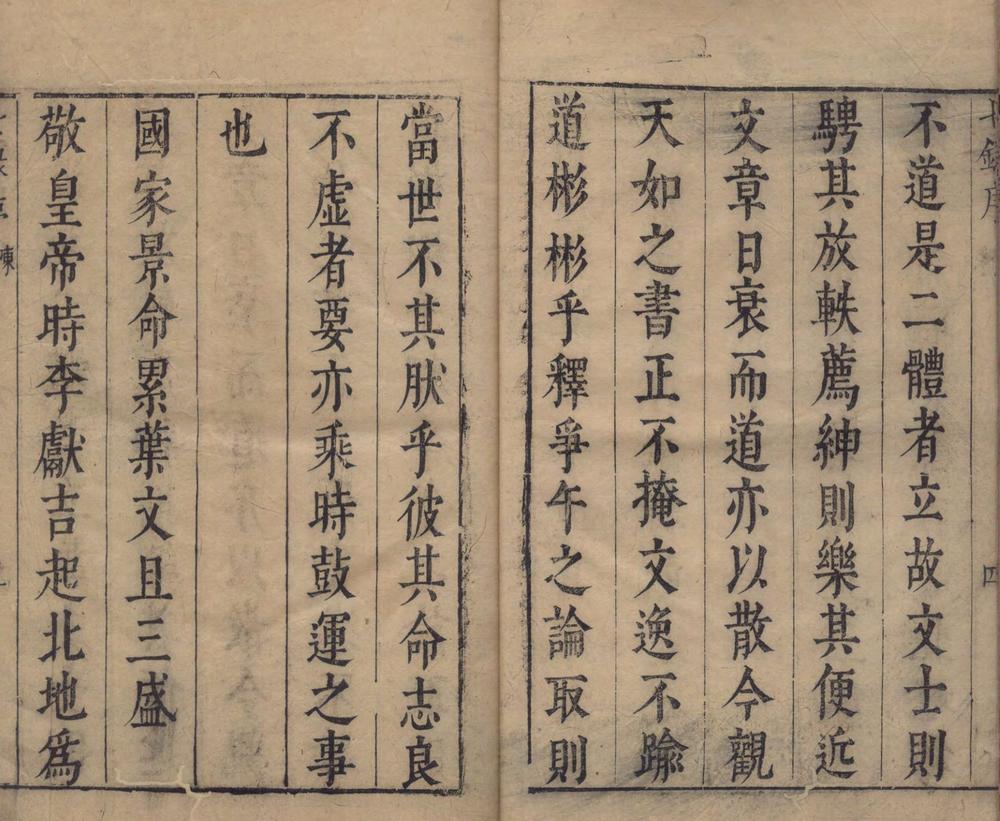 七錄序
四
不道是二體者立故文士則
騁其放軼薦紳則樂其便近
文章日衰而道亦以散今觀
天如之書正不掩文逸不踰
道彬彬乎釋爭午之論取則
當世不其肰乎彼其命志良
不虛者要亦乘時鼓運之事
也
國家景命累葉文且三盛
敬皇帝時李獻吉起北地爲
陳